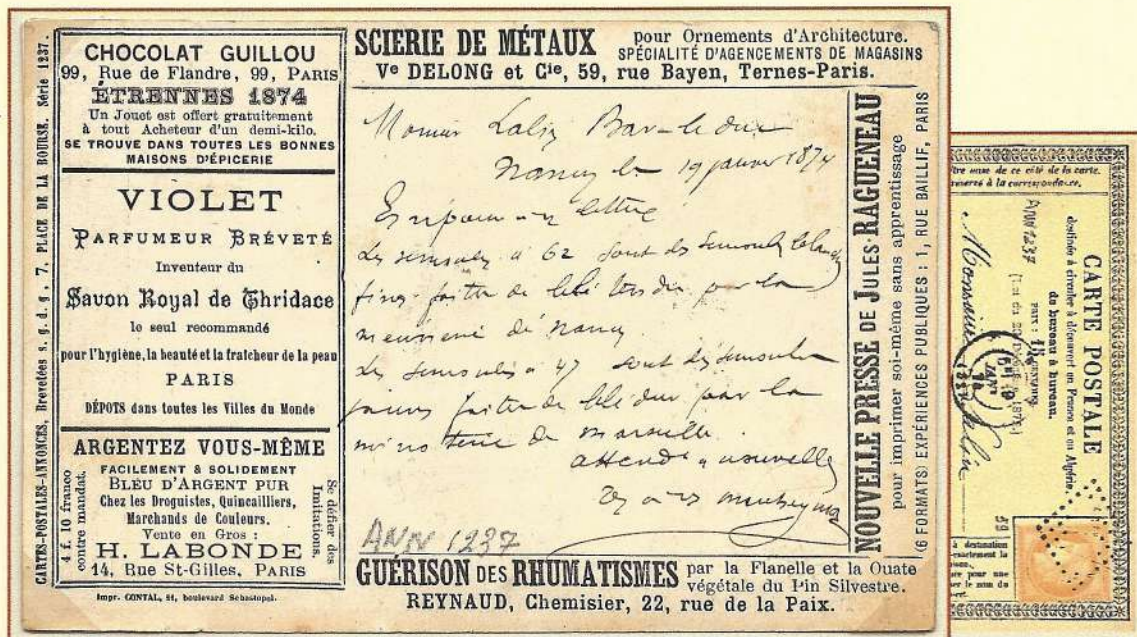 CARTES-POSTALES-ANNONCES, Brevetées s. g. d. g., 7, PLACE DE LA BOURSE. Série 1237.
CHOCOLAT GUILLOU
99, Rue de Flandre, 99, PARIS
ÉTRENNES 1874
Un Jouet est offert gratuitement
à tout Acheteur d'un demi-kilo.
SE TROUVE DANS TOUTES LES BONNES
MAISONS D'ÉPICERIE
VIOLET
PARFUMEUR BRÉVETÉ
Inventeur du
Savon Royal de Thridace
le seul recommandé
pour l'hygiène, la beauté et la fraîcheur de la peau
PARIS
DÉPOTS dans toutes les Villes du Monde
ARGENTEZ VOUS-MÊME
FACILEMENT & SOLIDEMENT
BLEU D'ARGENT PUR
Chez les Droguistes, Quincailliers,
Marchands de Couleurs.
Vente en Gros :
H. LABONDE
14, Rue St-Gilles, PARIS
4 f. 10 franco
contre mandat.
Se défier des
Imitations.
Impr. CONTAL, boulevard Sébastopol.
SCIERIE DE MÉTAUX pour Ornements d'Architecture.
SPÉCIALITÉ D'AGENCEMENTS DE MAGASINS
Ve DELONG et Cie, 59, rue Bayen, Ternes-Paris.
Bar-le-duc
Nancy le 19 janvier 1874
lettre
Les semoules à 62 sont des semoules blanches
fines faites de blé tendre par la
meunerie de nancy
Les semoules à 47 sont des semoules
jaunes faites de blé dur par la
minoterie de marseille.
nouvelles
ANN 1237
NOUVELLE PRESSE DE JULES RAGUENEAU
pour imprimer soi-même sans apprentissage
(6 FORMATS) EXPÉRIENCES PUBLIQUES : 1, RUE BAILLIF, PARIS
GUÉRISON DES RHUMATISMES par la Flanelle et la Ouate
végétale du Pin Silvestre.
REYNAUD, Chemisier, 22, rue de la Paix.
CARTE POSTALE
destinée à circuler à découvert en France et en Algérie,
du bureau à bureau.
ANN 1237
Monsieur
59